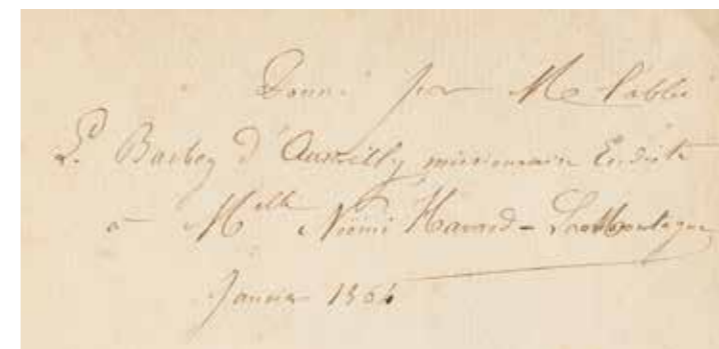 Donné par Mr l'abbé
L. Barbey d'Aurevilly missionnaire Eudiste
à Melle Noémi Havard - La Montagne
Janvier 1864